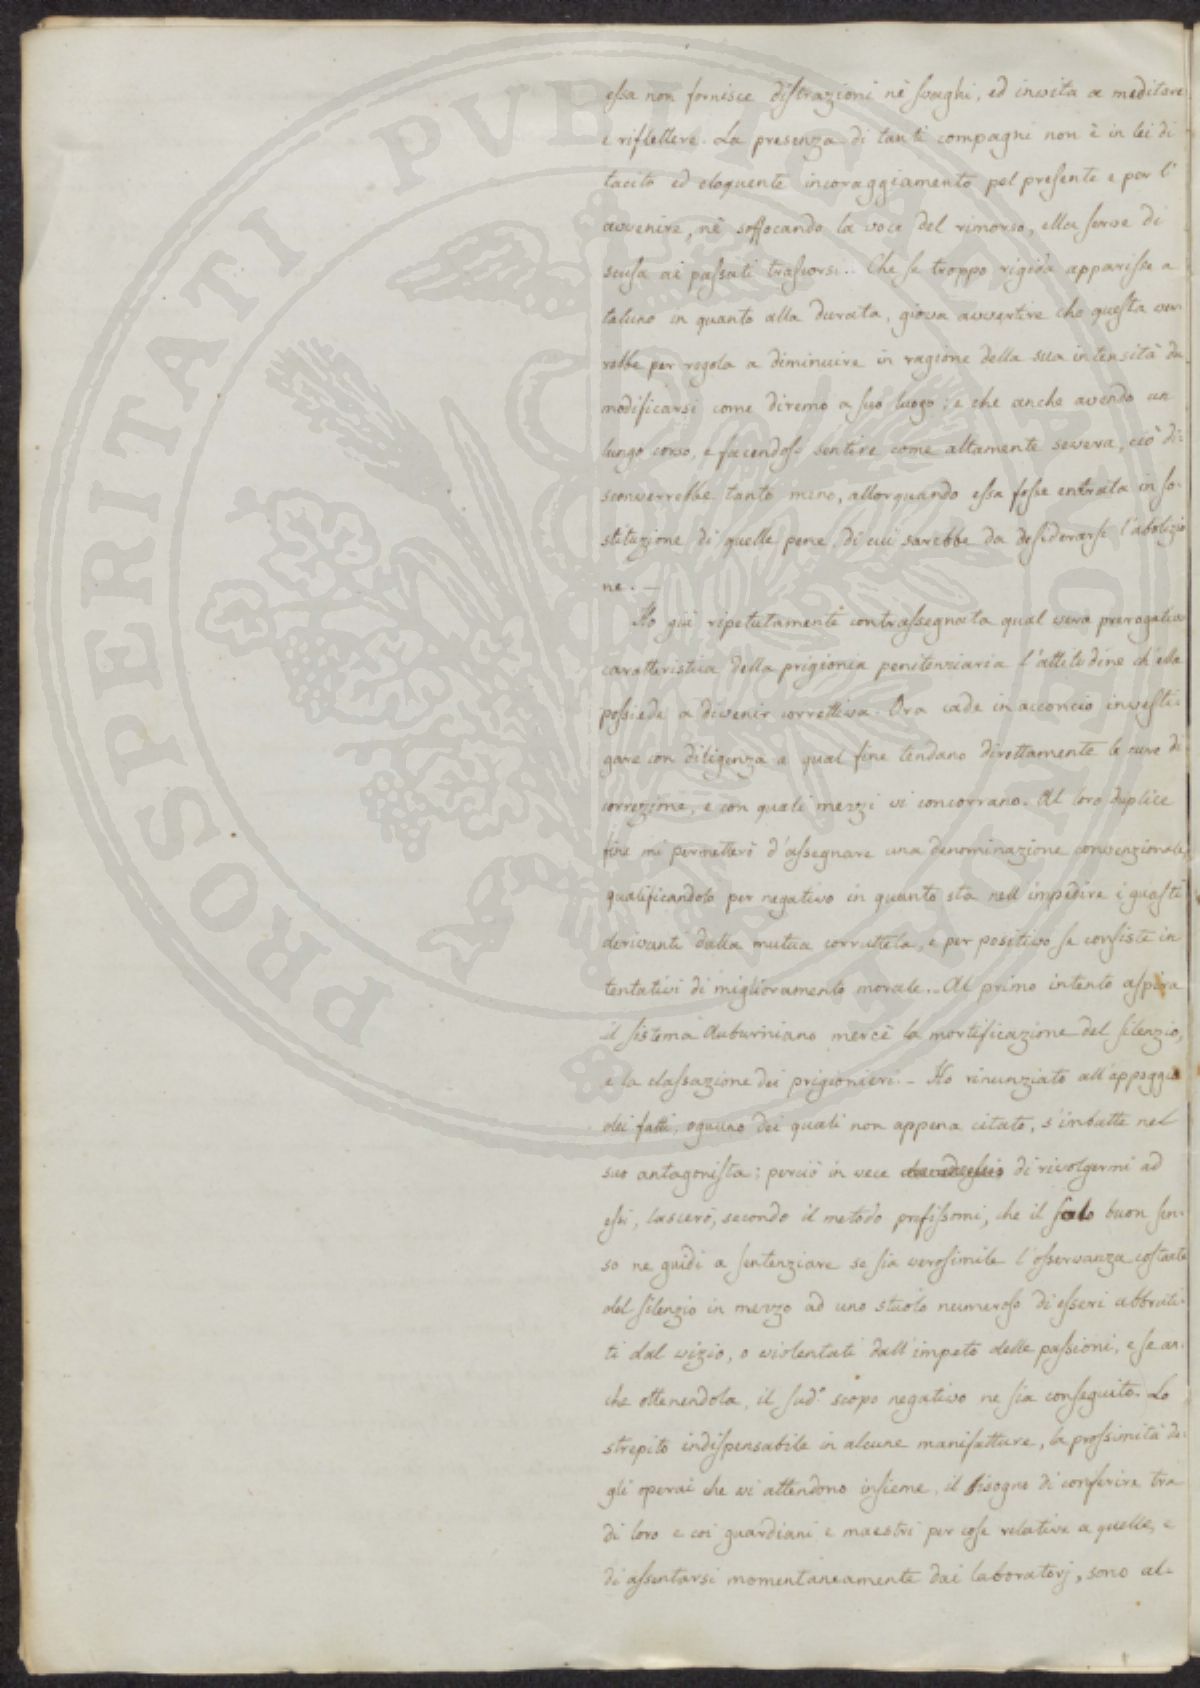 essa non fornisce distrazioni nè svaghi, ed invita a meditare
e riflettere. La presenza di tanti compagni non è in lei di
tacito ed eloquente incoraggiamento pel presente e per l'
avvenire, nè soffocando la voce del rimorso, ella serve di
scusa ai passati trascorsi.. Che se troppo rigida apparisse a
taluno in quanto alla durata, giova avvertire che questa ver-
rebbe per regola a diminuire in ragione della sua intensità da
modificarsi come diremo a suo luogo; e che anche avendo un
lungo corso, e facendosi sentire come altamente severa, ciò di=
sconverrebbe tanto meno, allorquando essa fosse entrata in so-
stituzione di quelle pene, di cui sarebbe da desiderarsi l'abolizio
ne. —
Ho già ripetutamente contrassegnata qual vera prerogativa
caratteristica della prigionia penitenziaria l'attitudine ch'ella
possiede a divenir correttiva. Ora cade in acconcio investi-
gare con diligenza a qual fine tendano direttamente le cure di
correzione, e con quali mezzi vi concorrano. Al loro duplice
fine mi permetterò d'assegnare una denominazione convenzionale,
qualificandolo per negativo in quanto sta nell'impedire i guasti
derivanti dalla mutua corruttela, e per positivo se consiste in
tentativi di miglioramento morale._ Al primo intento aspira
il sistema Auburniano mercè la mortificazione del silenzio,
e la classazione dei prigionieri. _ Ho rinunziato all'appoggio
dei fatti, ognuno dei quali non appena citato, s'imbatte nel
suo antagonista; perciò in vece di rivolgermi ad
essi, lascerò, secondo il metodo prefissomi, che il solo buon sen-
so ne guidi a sentenziare se sia verosimile l'osservanza costante
del silenzio in mezzo ad uno stuolo numeroso di esseri abbruti-
ti dal vizio, o violentati dall'impeto delle passioni, e se an-
che ottenendola, il sud.o scopo negativo ne sia conseguito. Lo
strepito indispensabile in alcune manifatture, la prossimità de-
gli operai che vi attendono insieme, il bisogno di conferire tra
di loro e coi guardiani e maestri per cose relative a quelle, e
di assentarsi momentaneamente dai laboratorj, sono al-
PROSPERITATI PVBLICAE